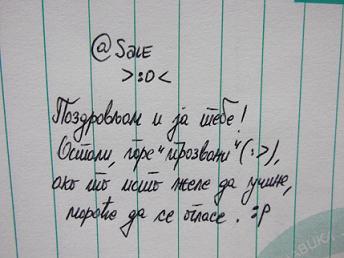 @Sale
>:D<
Поздрављам и ја тебе!
Остали, горе "прозвани" (:>),
ако то исто желе да учине,
мораће да се огласе. :P